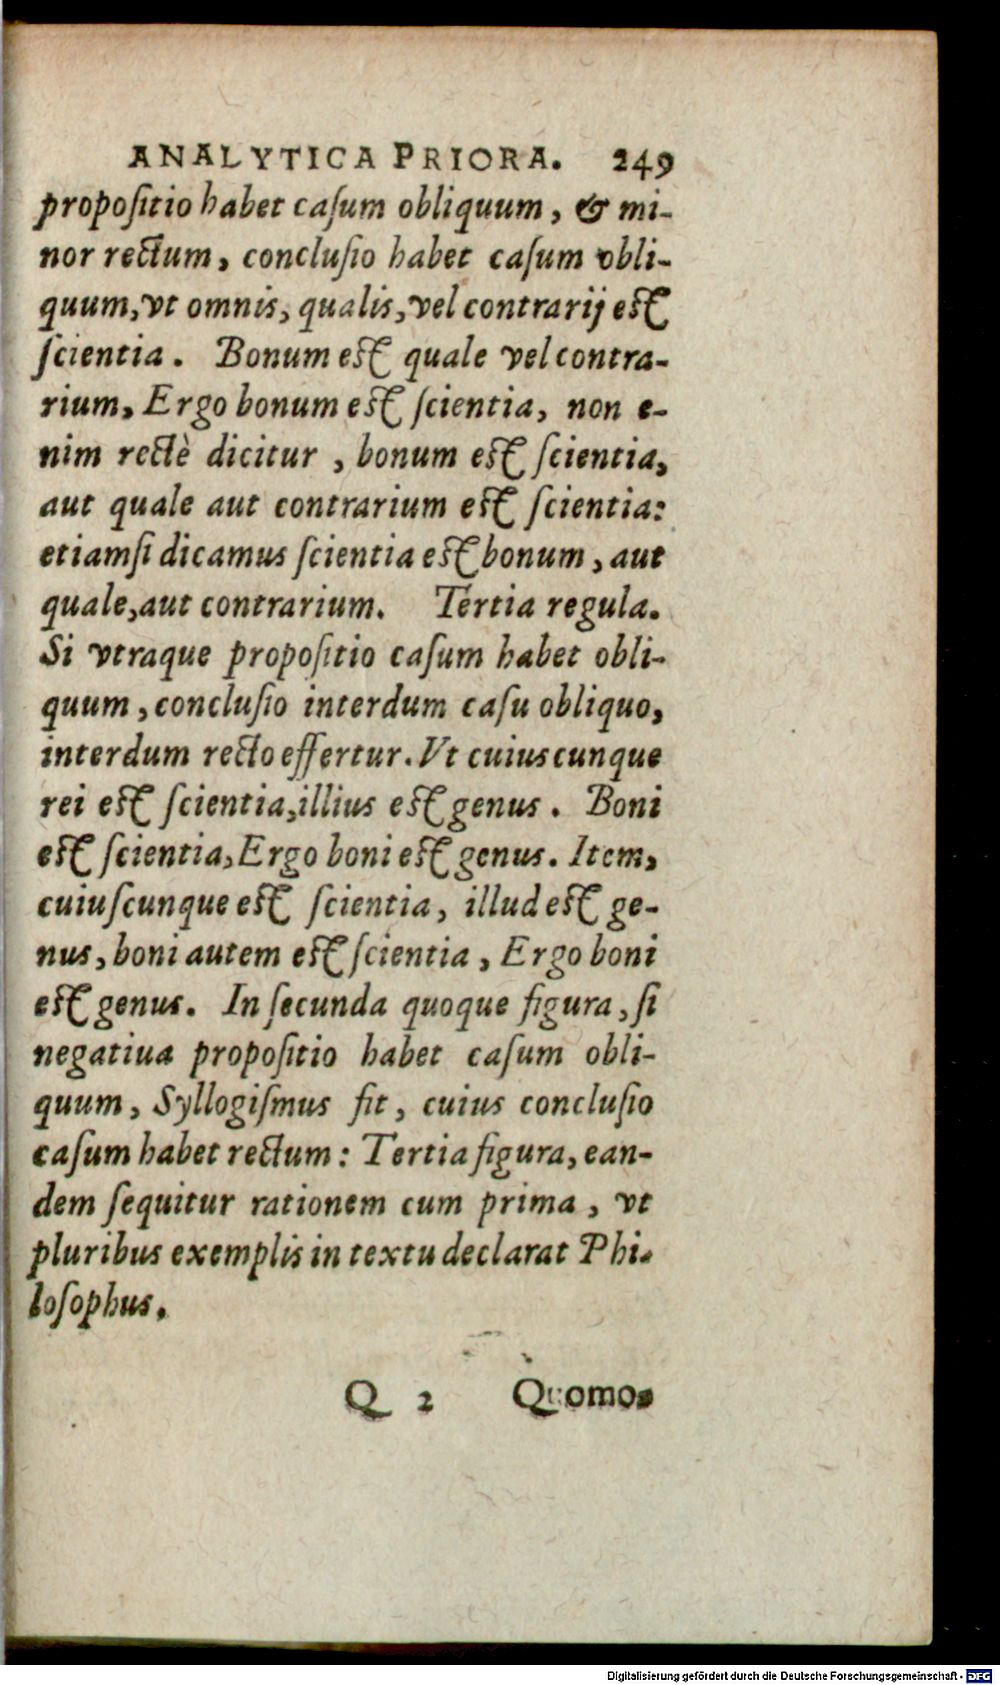 ANALYTICA PRIORA. 249
propoſitio habet caſum obliquum, & mi-
nor rectum, concluſio habet caſum obli-
quum, vt omnis, qualis, vel contrarij eſt
ſcientia. Bonum eſt quale vel contra-
rium, Ergo bonum eſt ſcientia, non e-
nim rectè dicitur, bonum eſt ſcientia,
aut quale aut contrarium eſt ſcientia:
etiamſi dicamus ſcientia eſt bonum, aut
quale, aut contrarium. Tertia regula.
Si vtraque propoſitio caſum habet obli-
quum, concluſio interdum caſu obliquo,
interdum recto effertur. Vt cuiuscunque
rei eſt ſcientia, illius eſt genus. Boni
eſt ſcientia, Ergo boni eſt genus. Item,
cuiuſcunque eſt ſcientia, illud eſt ge-
nus, boni autem eſt ſcientia, Ergo boni
eſt genus. In ſecunda quoque figura, ſi
negatiua propoſitio habet caſum obli-
quum, Syllogiſmus fit, cuius concluſio
caſum habet rectum: Tertia figura, ean-
dem ſequitur rationem cum prima, vt
pluribus exemplis in textu declarat Phi-
loſophus.
Q 2 Quomo-
Digitalisierung gefördert durch die Deutsche Forschungsgemeinschaft - DFG